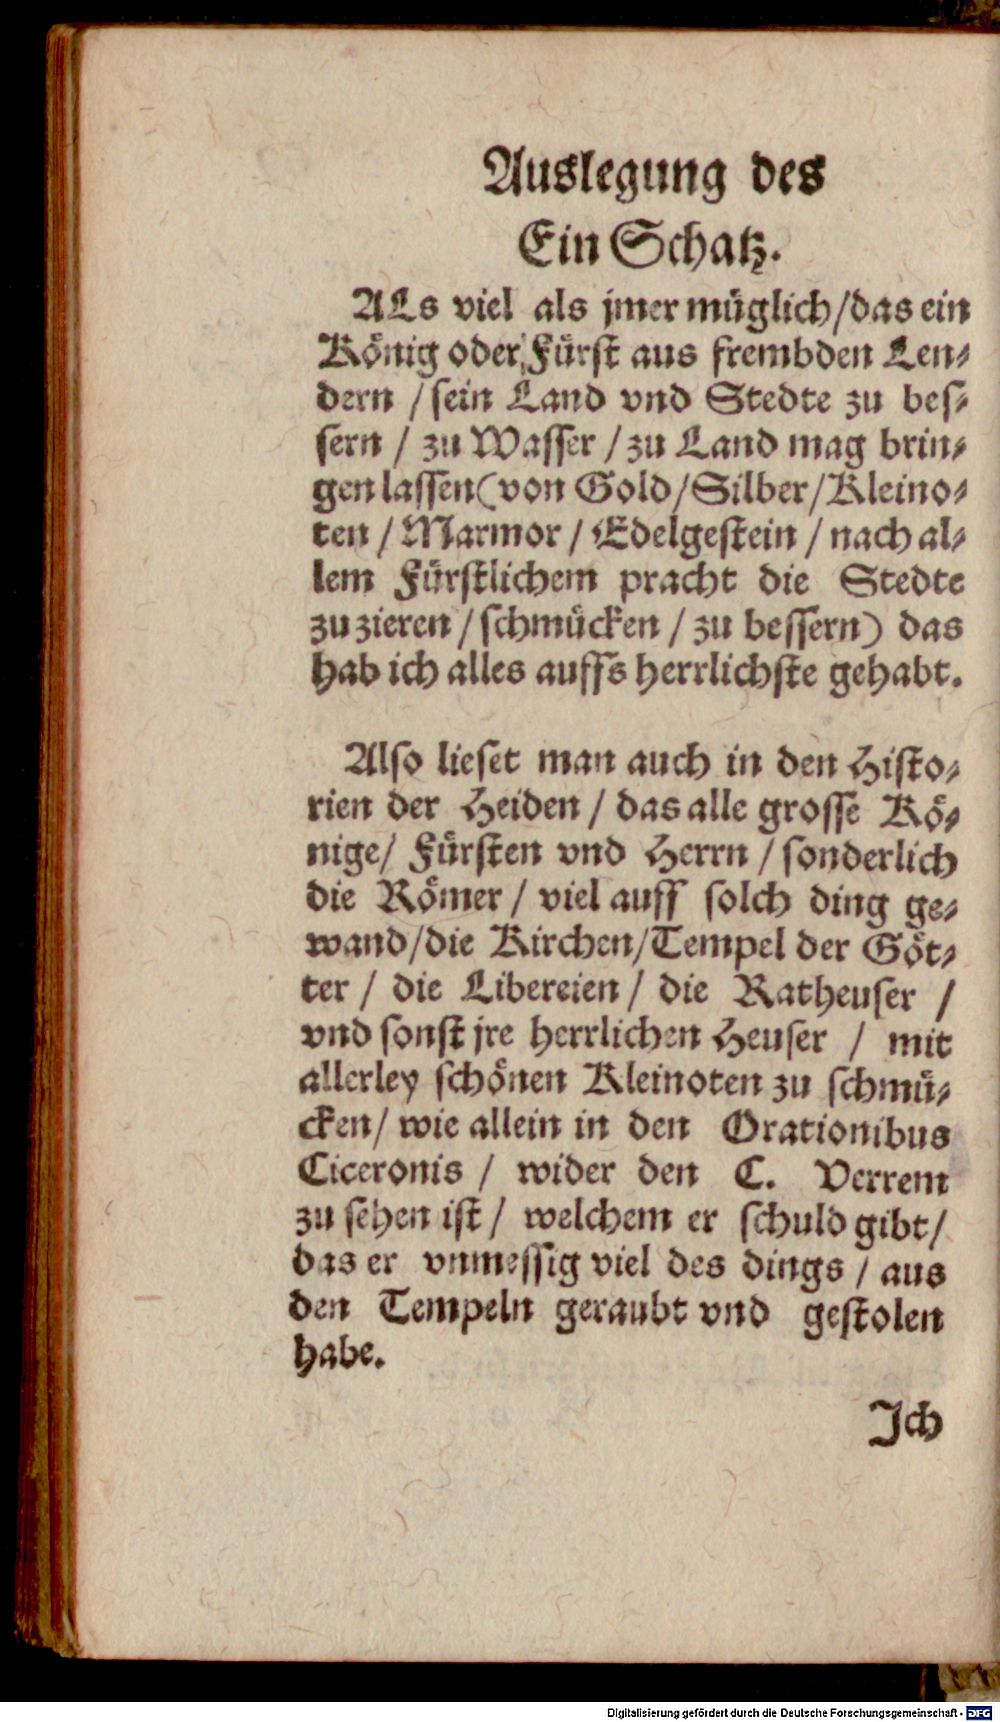 Auslegung des
Ein Schatz.
ALs viel als jmer müglich/das ein
König oder Fürst aus frembden Len-
dern / sein Land vnd Stedte zu bes-
sern / zu Wasser / zu Land mag brin-
gen lassen (von Gold/Silber/Kleino-
ten / Marmor / Edelgestein / nach al-
lem Fürstlichem pracht die Stedte
zu zieren / schmücken / zu bessern) das
hab ich alles auffs herrlichste gehabt.
Also lieset man auch in den Histo-
rien der Heiden / das alle grosse Kö-
nige/ Fürsten vnd Herrn / sonderlich
die Römer / viel auff solch ding ge-
wand/die Kirchen/Tempel der Göt-
ter / die Libereien / die Ratheuser /
vnd sonst jre herrlichen Heuser / mit
allerley schönen Kleinoten zu schmü-
cken/ wie allein in den Orationibus
Ciceronis / wider den C. Verrem
zu sehen ist / welchem er schuld gibt/
das er vnmessig viel des dings / aus
den Tempeln geraubt vnd gestolen
habe.
Ich
Digitalisierung gefördert durch die Deutsche Forschungsgemeinschaft - DFG